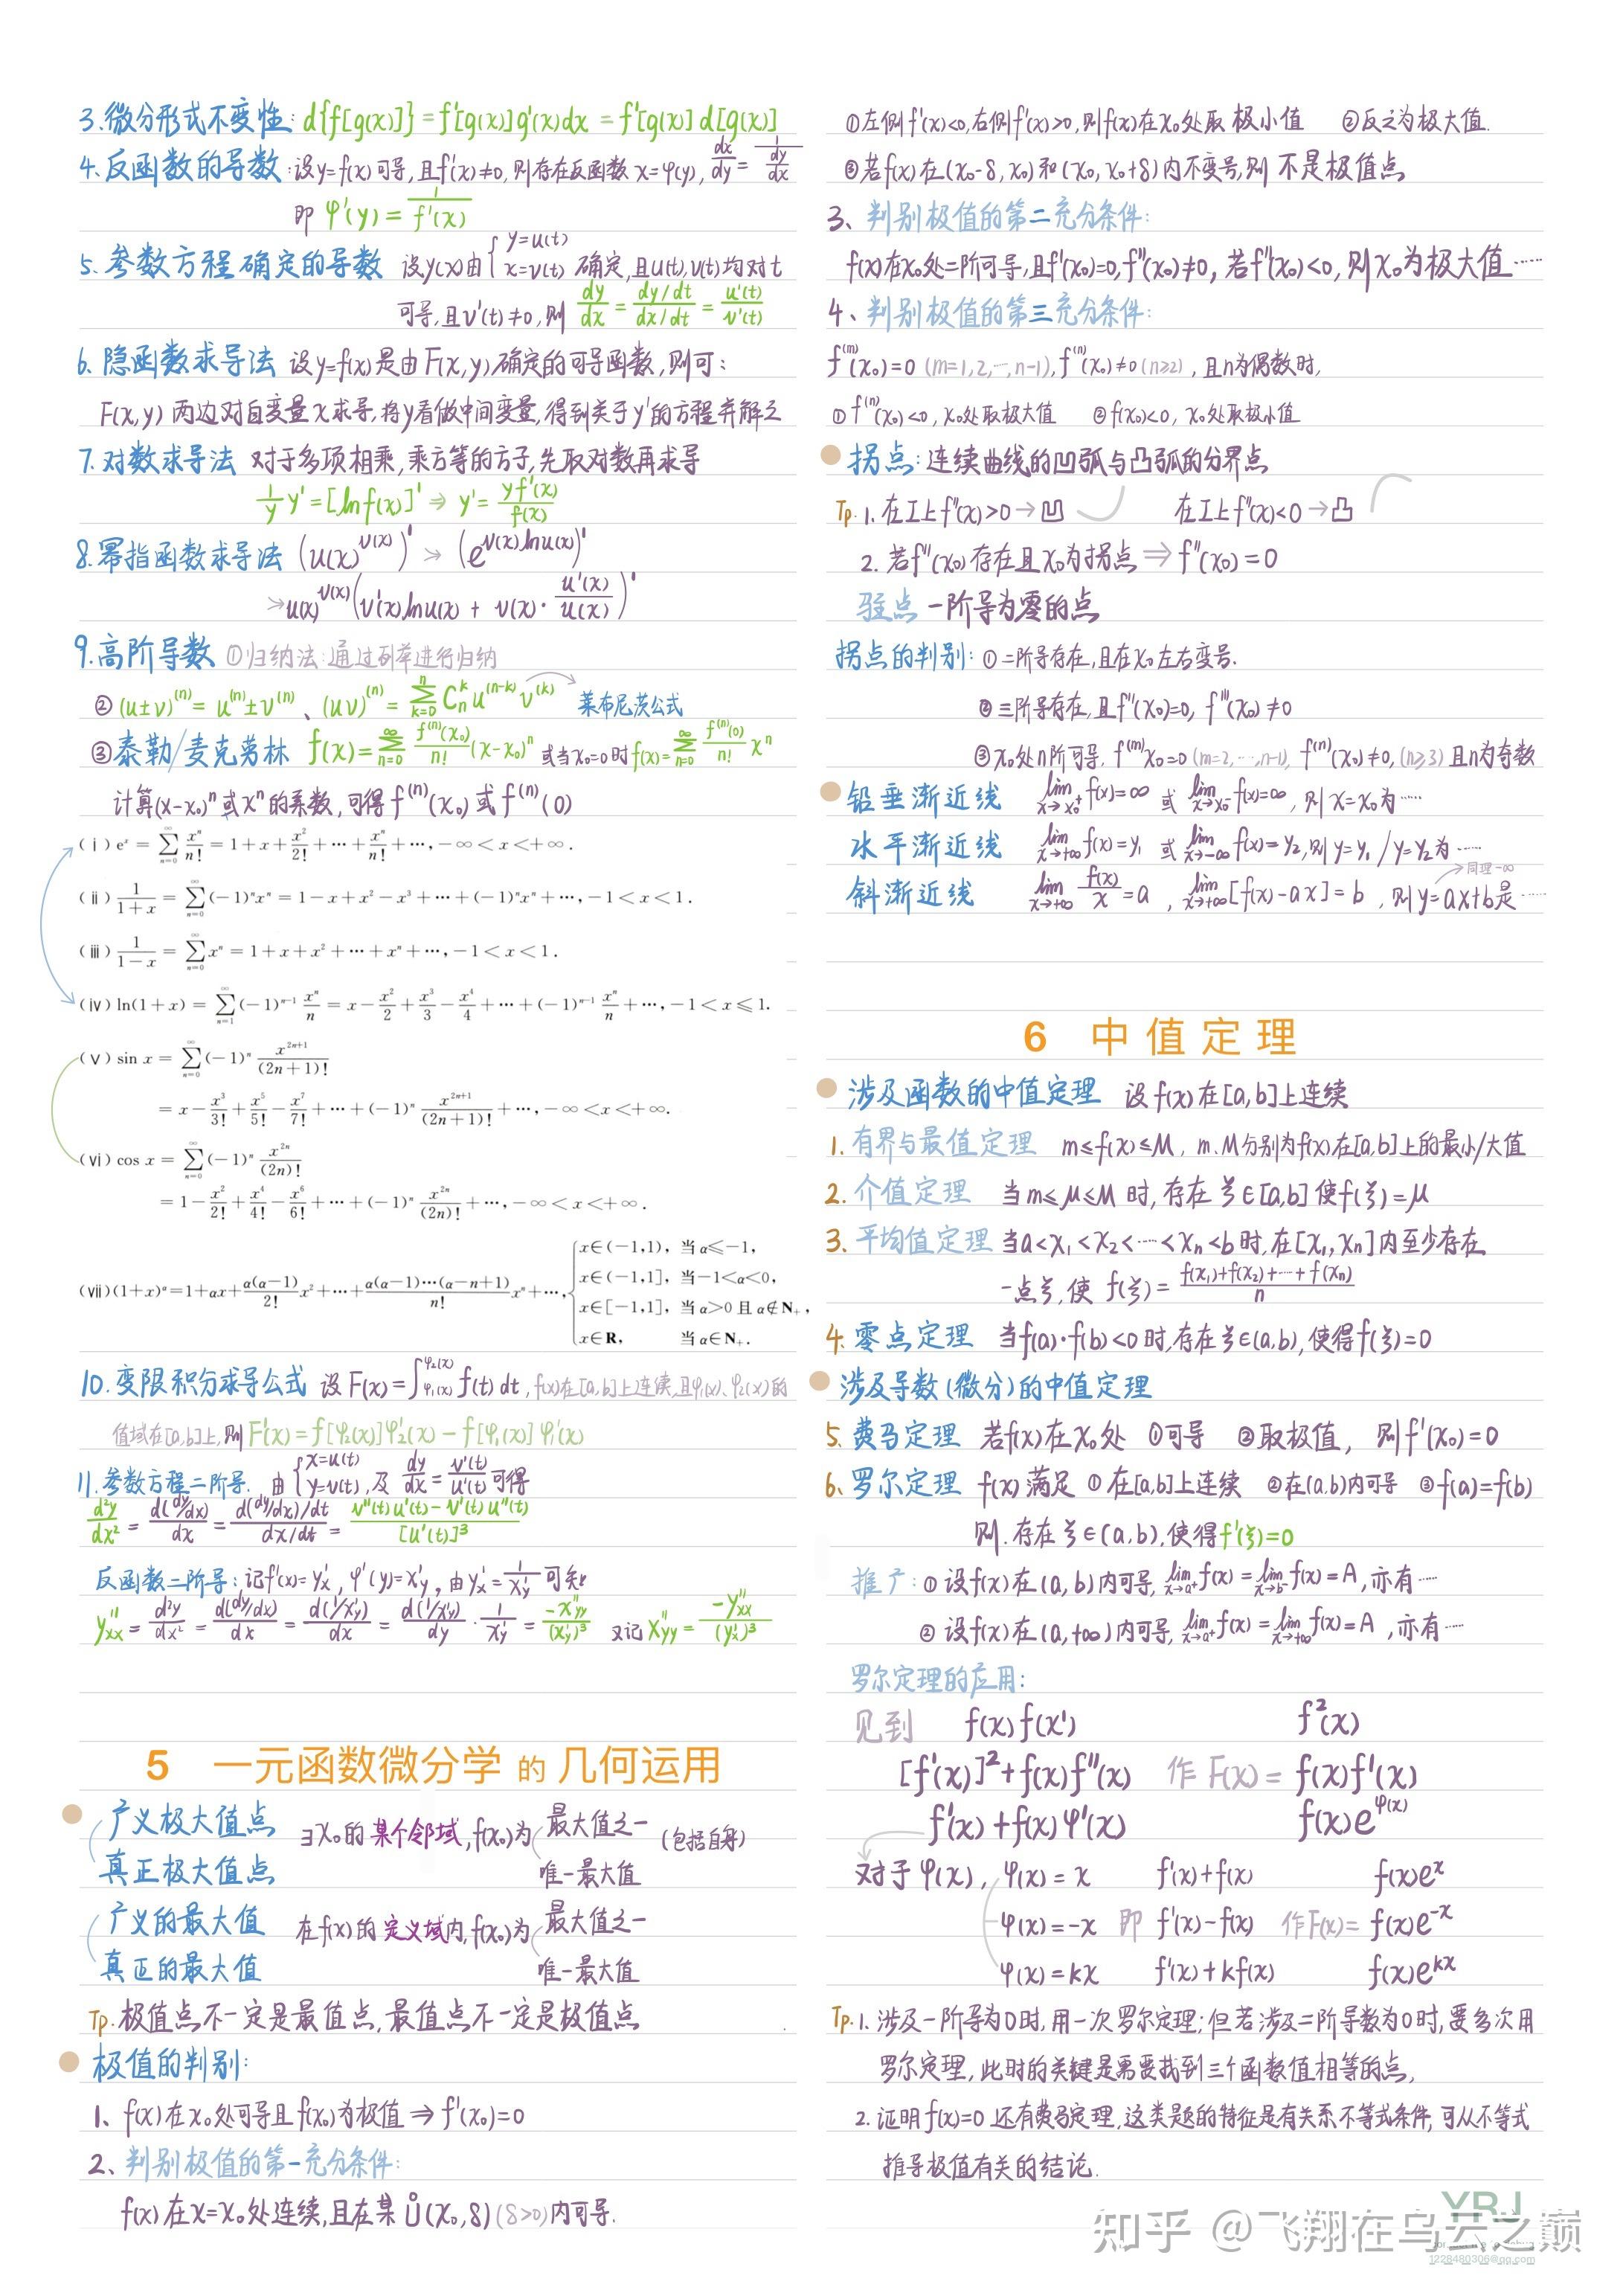 3.微分形式不变性: d{f[g(x)]} = f'[g(x)]g'(x)dx = f'[g(x)]d[g(x)]
4.反函数的导数:设y=f(x)可导,且f'(x)≠0,则存在反函数 x=φ(y), dx/dy = 1/(dy/dx)
即 φ'(y) = 1/f'(x)
5.参数方程确定的导数 设y(x)由{y=u(t) x=v(t) 确定,且u(t),v(t)均对t
可导,且v'(t)≠0,则 dy/dx = (dy/dt)/(dx/dt) = u'(t)/v'(t)
6.隐函数求导法 设y=f(x)是由F(x,y)确定的可导函数,则可:
F(x,y)两边对自变量x求导,将y看做中间变量,得到关于y'的方程并解之
7.对数求导法 对于多项相乘,乘方等的方子,先取对数再求导
1/y y' = [lnf(x)]' ⇒ y' = yf'(x)/f(x)
8.幂指函数求导法 (u(x)^v(x))' → (e^v(x)lnu(x))'
→u(x)^v(x)(v'(x)lnu(x) + v(x)·u'(x)/u(x))'
9.高阶导数 ①归纳法:通过列举进行归纳
②(u±v)^(n) = u^(n)±v^(n)、(uv)^(n) = ∑_{k=0}^{n} C_n^k u^(n-k) v^(k) 莱布尼茨公式
③泰勒/麦克劳林 f(x)=∑_{n=0}^{∞} f^(n)(x₀)/n! (x-x₀)^n 或当x₀=0时 f(x)=∑_{n=0}^{∞} f^(n)(0)/n! x^n
计算(x-x₀)^n或x^n的系数,可得f^(n)(x₀)或f^(n)(0)
(ⅰ) e^x = ∑_{n=0}^{∞} x^n/n! = 1+x+x²/2!+···+x^n/n!+···,-∞<x<+∞.
(ⅱ) 1/(1+x) = ∑_{n=0}^{∞}(-1)^n x^n = 1-x+x²-x³+···+(-1)^n x^n+···,-1<x<1.
(ⅲ) 1/(1-x) = ∑_{n=0}^{∞} x^n = 1+x+x²+···+x^n+···,-1<x<1.
(ⅳ) ln(1+x) = ∑_{n=1}^{∞}(-1)^(n-1) x^n/n = x-x²/2+x³/3-x⁴/4+···+(-1)^(n-1) x^n/n+···,-1<x≤1.
(ⅴ) sin x = ∑_{n=0}^{∞}(-1)^n x^(2n+1)/(2n+1)!
= x-x³/3!+x⁵/5!-x⁷/7!+···+(-1)^n x^(2n+1)/(2n+1)!+···,-∞<x<+∞.
(ⅵ) cos x = ∑_{n=0}^{∞}(-1)^n x^(2n)/(2n)!
= 1-x²/2!+x⁴/4!-x⁶/6!+···+(-1)^n x^(2n)/(2n)!+···,-∞<x<+∞.
(ⅶ)(1+x)^α=1+αx+α(α-1)/2! x²+···+α(α-1)···(α-n+1)/n! x^n+···,
x∈(-1,1), 当α≤-1,
x∈(-1,1], 当-1<α<0,
x∈[-1,1], 当α>0且α∉N₊,
x∈R, 当α∈N₊.
10.变限积分求导公式 设F(x)=∫_{φ₁(x)}^{φ₂(x)} f(t)dt, f(x)在[a,b]上连续,且φ₁(x)、φ₂(x)的
值域在[a,b]上,则F'(x) = f[φ₂(x)]φ₂'(x) - f[φ₁(x)]φ₁'(x)
11.参数方程二阶导. 由{x=u(t) y=v(t),及 dy/dx = v'(t)/u'(t) 可得
d²y/dx² = d(dy/dx)/dx = (d(dy/dx)/dt)/(dx/dt) = (v''(t)u'(t)-v'(t)u''(t))/[u'(t)]³
反函数二阶导:记f'(x)=y'x, φ'(y)=x'y, 由y'x=1/x'y 可知
y''xx = d²y/dx² = d(dy/dx)/dx = d(1/x'y)/dx = d(1/x'y)/dy · 1/x'y = -x''yy/(x'y)³ 又记 x''yy = -y''xx/(y'x)³
5 一元函数微分学的几何运用
广义极大值点 ∃x₀的某个邻域,f(x₀)为 最大值之一 (包括自身)
真正极大值点 唯一最大值
广义的最大值 在f(x)的定义域内,f(x₀)为 最大值之一
真正的最大值 唯一最大值
Tp.极值点不一定是最值点,最值点不一定是极值点
极值的判别:
1、f(x)在x₀处可导且f(x₀)为极值⇒f'(x₀)=0
2、判别极值的第一充分条件:
f(x)在x=x₀处连续,且在某Ů(x₀,δ)(δ>0)内可导.
①左侧f'(x)<0,右侧f'(x)>0,则f(x)在x₀处取极小值 ②反之为极大值.
③若f(x)在(x₀-δ,x₀)和(x₀,x₀+δ)内不变号,则不是极值点
3、判别极值的第二充分条件:
f(x)在x₀处二阶可导,且f'(x₀)=0,f''(x₀)≠0,若f''(x₀)<0,则x₀为极大值·····
4、判别极值的第三充分条件:
f^(m)(x₀)=0 (m=1,2,···,n-1),f^(n)(x₀)≠0(n≥2),且n为偶数时,
①f^(n)(x₀)<0,x₀处取极大值 ②f(x₀)<0,x₀处取极小值
拐点:连续曲线的凹弧与凸弧的分界点
Tp.1.在I上f''(x)>0→凹 在I上f''(x)<0→凸
2.若f''(x₀)存在且x₀为拐点⇒f''(x₀)=0
驻点 一阶导为零的点
拐点的判别:①二阶导存在,且在x₀左右变号.
②三阶导存在,且f''(x₀)=0,f'''(x₀)≠0
③x₀处n阶可导,f^(m)x₀=0(m=2,···,n-1),f^(n)(x₀)≠0,(n≥3)且n为奇数
铅垂渐近线 lim_{x→x₀⁺}f(x)=∞ 或 lim_{x→x₀⁻}f(x)=∞,则x=x₀为·····
水平渐近线 lim_{x→+∞}f(x)=y₁ 或 lim_{x→-∞}f(x)=y₂,则y=y₁/y=y₂为·····
同理-∞
斜渐近线 lim_{x→+∞} f(x)/x=a, lim_{x→+∞}[f(x)-ax]=b,则y=ax+b是·····
6 中值定理
涉及函数的中值定理 设f(x)在[a,b]上连续
1.有界与最值定理 m≤f(x)≤M,m、M分别为f(x)在[a,b]上的最小/大值
2.介值定理 当m≤μ≤M时,存在ξ∈[a,b]使f(ξ)=μ
3.平均值定理 当a<x₁<x₂<·····<xn<b时,在[x₁,xn]内至少存在
一点ξ,使 f(ξ)=(f(x₁)+f(x₂)+···+f(xn))/n
4.零点定理 当f(a)·f(b)<0时,存在ξ∈(a,b),使得f(ξ)=0
涉及导数(微分)的中值定理
5.费马定理 若f(x)在x₀处 ①可导 ②取极值,则f'(x₀)=0
6.罗尔定理 f(x)满足 ①在[a,b]上连续 ②在(a,b)内可导 ③f(a)=f(b)
则.存在ξ∈(a,b),使得f'(ξ)=0
推广:①设f(x)在(a,b)内可导,lim_{x→a⁺}f(x)=lim_{x→b⁻}f(x)=A,亦有·····
②设f(x)在(a,+∞)内可导,lim_{x→a⁺}f(x)=lim_{x→+∞}f(x)=A,亦有·····
罗尔定理的应用:
见到 f(x)f(x') f²(x)
[f'(x)]²+f(x)f''(x) 作F(x)= f(x)f'(x)
f'(x)+f(x)φ'(x) f(x)e^φ(x)
对于φ(x), φ(x)=x f'(x)+f(x) f(x)e^x
φ(x)=-x 即 f'(x)-f(x) 作F(x)= f(x)e^-x
φ(x)=kx f'(x)+kf(x) f(x)e^kx
Tp.1.涉及一阶导为0时,用一次罗尔定理;但若涉及二阶导数为0时,要多次用
罗尔定理,此时的关键是需要找到三个函数值相等的点,
2.证明f(x)=0还有费马定理,这类题的特征是有关系不等式条件,可从不等式
推导极值有关的结论.
YRJ
知乎 @飞翔在乌云之巅
1228480306@qq.com